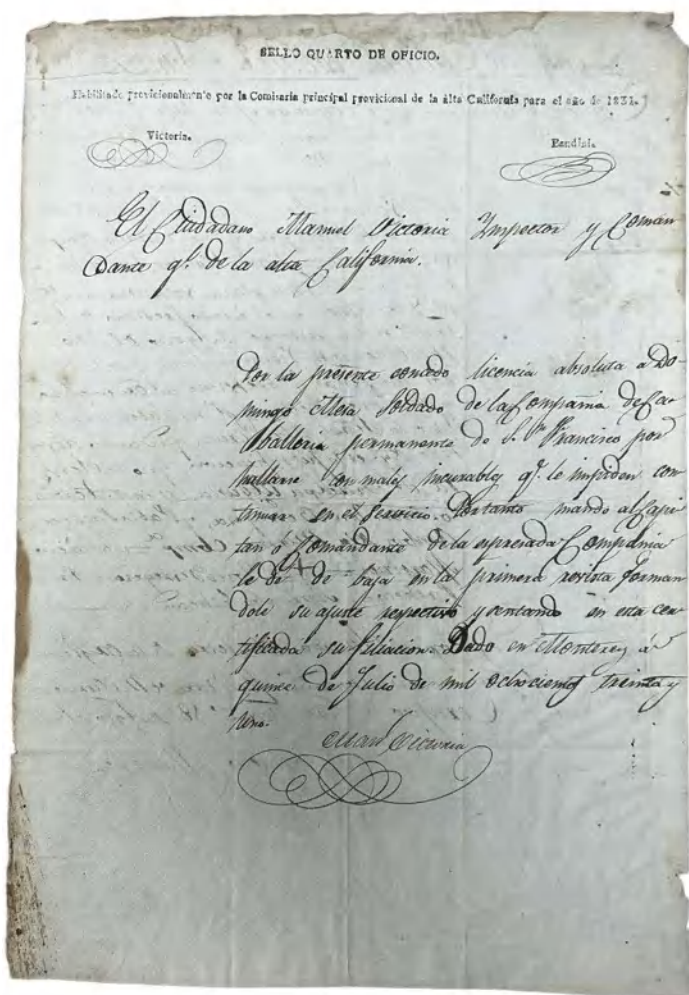 SELLO QUARTO DE OFICIO.
Habilitado provicionalmente por la Comisaria principal provicional de la alta California para el año de 1831.
Victoria. Bandini.
El Ciudadano Manuel Victoria Inspector y Coman
dante gl. de la alta California.
Por la presente concedo licencia absoluta a Do-
mingo Mesa Soldado de la Compañia de Ca-
balleria permanente de S. Francisco por
hallarse con males incurables qe. le impiden con
tinuar en el servicio. Por tanto mando al Capi
tan o Comandante de la espresada Compañia
le dé de baja en la primera revista forman
dole su ajuste respectivo y sentando en esta cer
tificada su filiacion. Dado en Monterey á
quince de Julio de mil ochocientos treinta y
uno.
Man. Victoria